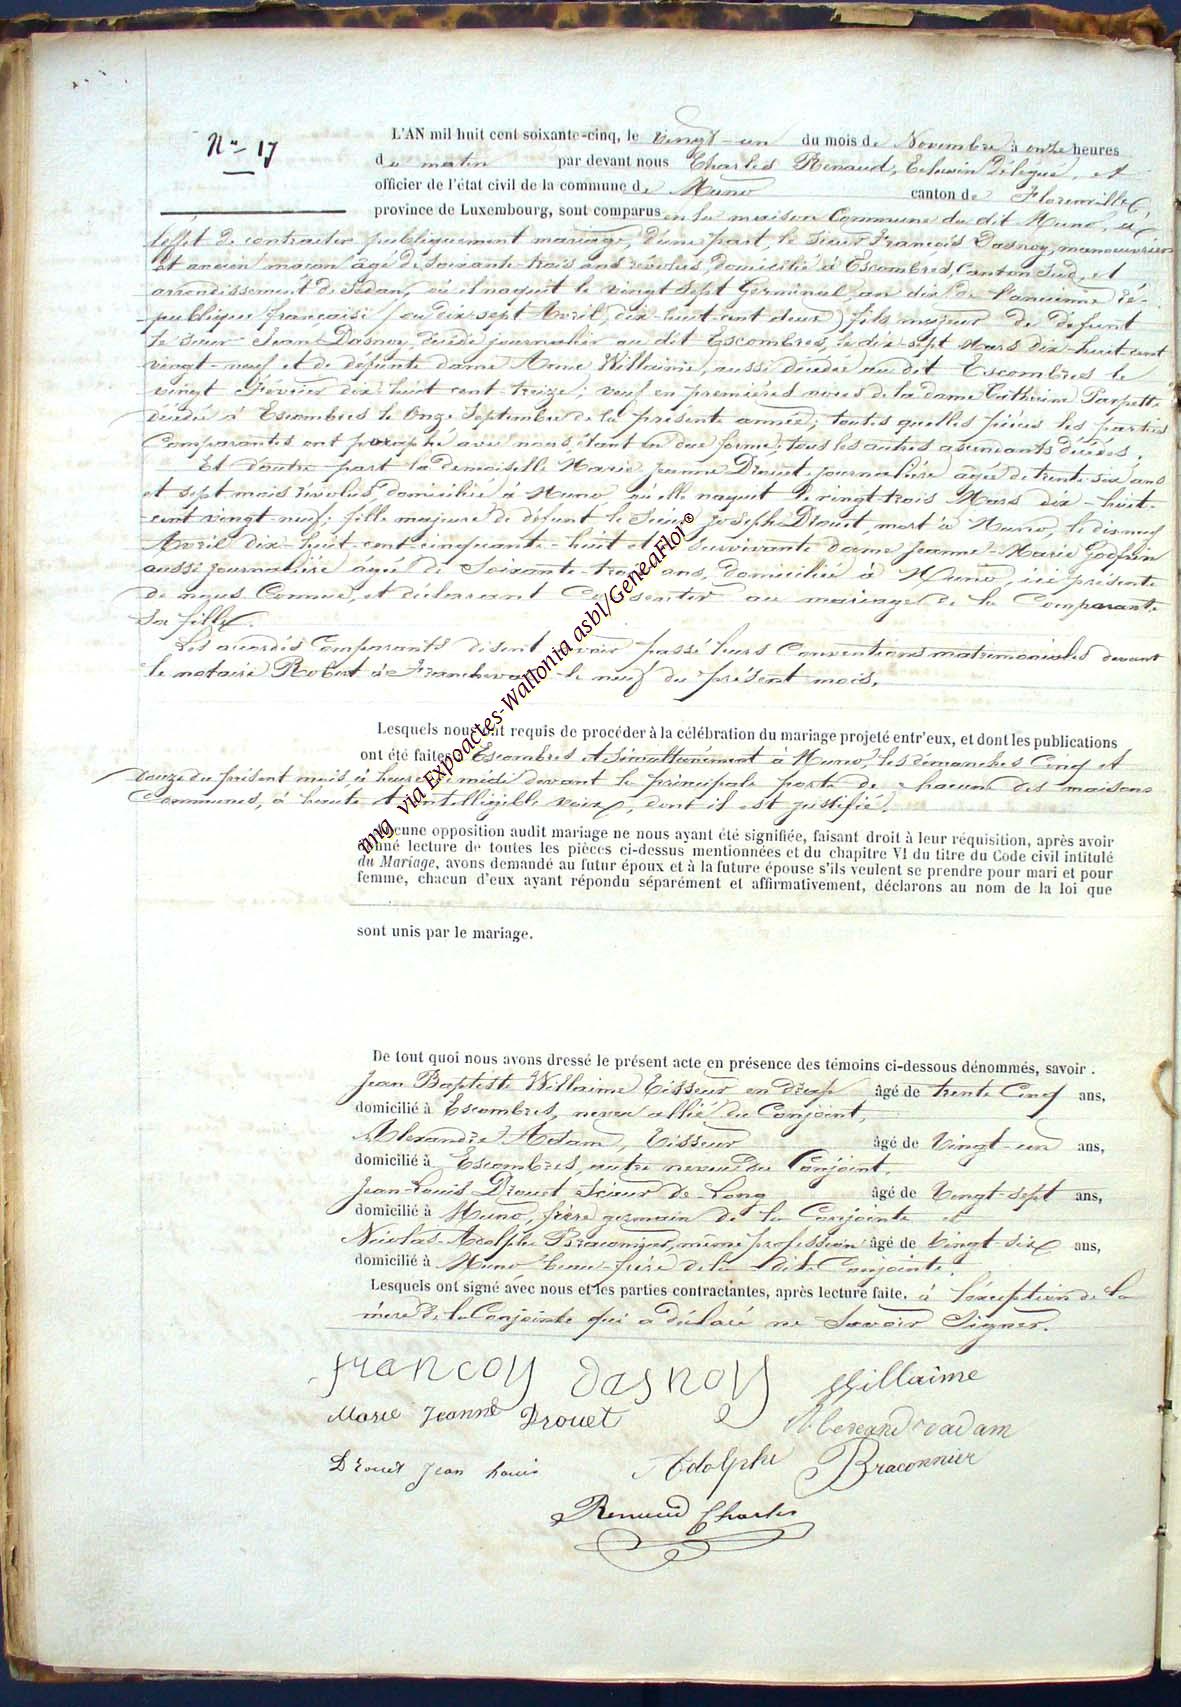 N° 17
L'AN mil huit cent soixante-cinq, le vingt-un du mois de Novembre à onze heures
du matin par devant nous Charles Renaud, Echevin délégué, et
officier de l'état civil de la commune de Muno canton de Florenville,
province de Luxembourg, sont comparus en la maison Commune du dit Muno, à
l'effet de contracter publiquement mariage, d'une part, le sieur François Dasnoy, manouvrier
et ancien maçon âgé de soixante-trois ans révolus, domicilié à Escombres, Canton Sud, et
arrondissement de Sedan, où il naquit le vingt sept Germinal an dix de l'ancienne ré-
publique française (ou dix sept Avril, dix-huit-cent deux) fils majeur de défunt
le sieur Jean Dasnoy, décédé journalier au dit Escombres, le dix-sept Mars dix-huit-cent
vingt-neuf et de défunte dame Anne Willaime, aussi décédée au dit Escombres le
vingt Février dix-huit cent-treize; veuf en premières noces de la dame Catherine Parpette
décédée à Escombres le onze Septembre de la présente année; toutes quelles pièces les parties
Comparantes ont paraphé avec nous, étant en due forme; tous les autres ascendants décédés.
Et d'autre part la demoiselle Marie Jeanne Drouet journalière âgée de trente-six ans
et sept mois révolus, domiciliée à Muno où elle naquit le vingt-trois Mars dix-huit-
cent vingt-neuf; fille majeure de défunt le Sieur Joseph Drouet, mort à Muno, le dix neuf
Avril dix-huit-cent-cinquante-huit et de survivante dame Jeanne-Marie Godfrin
aussi journalière âgée de Soixante-trois ans, domiciliée à Muno, ici présente
de nous Connue, et déclarant Consentir au mariage de la Comparante
sa fille.
Les accordés Comparants disent avoir passé leurs Conventions matrimoniales devant
le notaire Robert à Francheval le neuf du présent mois.
Lesquels nous ont requis de procéder à la célébration du mariage projeté entr'eux, et dont les publications
ont été faites à Escombres et Simultanément à Muno, les dimanches Cinq et
douze du présent mois, à heure de midi devant la principale porte de chacune des maisons
Communes, à haute et intelligible voix, dont il est justifié.
Aucune opposition audit mariage ne nous ayant été signifiée, faisant droit à leur réquisition, après avoir
donné lecture de toutes les pièces ci-dessus mentionnées et du chapitre VI du titre du Code civil intitulé
du Mariage, avons demandé au futur époux et à la future épouse s'ils veulent se prendre pour mari et pour
femme, chacun d'eux ayant répondu séparément et affirmativement, déclarons au nom de la loi que
sont unis par le mariage.
De tout quoi nous avons dressé le présent acte en présence des témoins ci-dessous dénommés, savoir.
Jean Baptiste Willaime Tisseur en drap âgé de trente Cinq ans,
domicilié à Escombres, neveu allié du Conjoint,
Alexandre Adam, Tisseur âgé de Vingt-un ans,
domicilié à Escombres, autre neveu du Conjoint.
Jean-Louis Drouet Scieur de Long âgé de Vingt-sept ans,
domicilié à Muno, frère germain de la Conjointe et
Nicolas-Adolphe Braconnier, même profession âgé de Vingt-six ans,
domicilié à Muno beau-frère de la dite Conjointe.
Lesquels ont signé avec nous et les parties contractantes, après lecture faite. à l'exception de la
mère de la Conjointe qui a déclaré ne Savoir Signer.
francoy dasnoy Willaime
Marie Jeanne Drouet Alexandre adam
Drouet Jean Louis Adolphe Braconnier
Renaud Charles
img via Expoactes-Wallonia asbl/GeneaFlor©